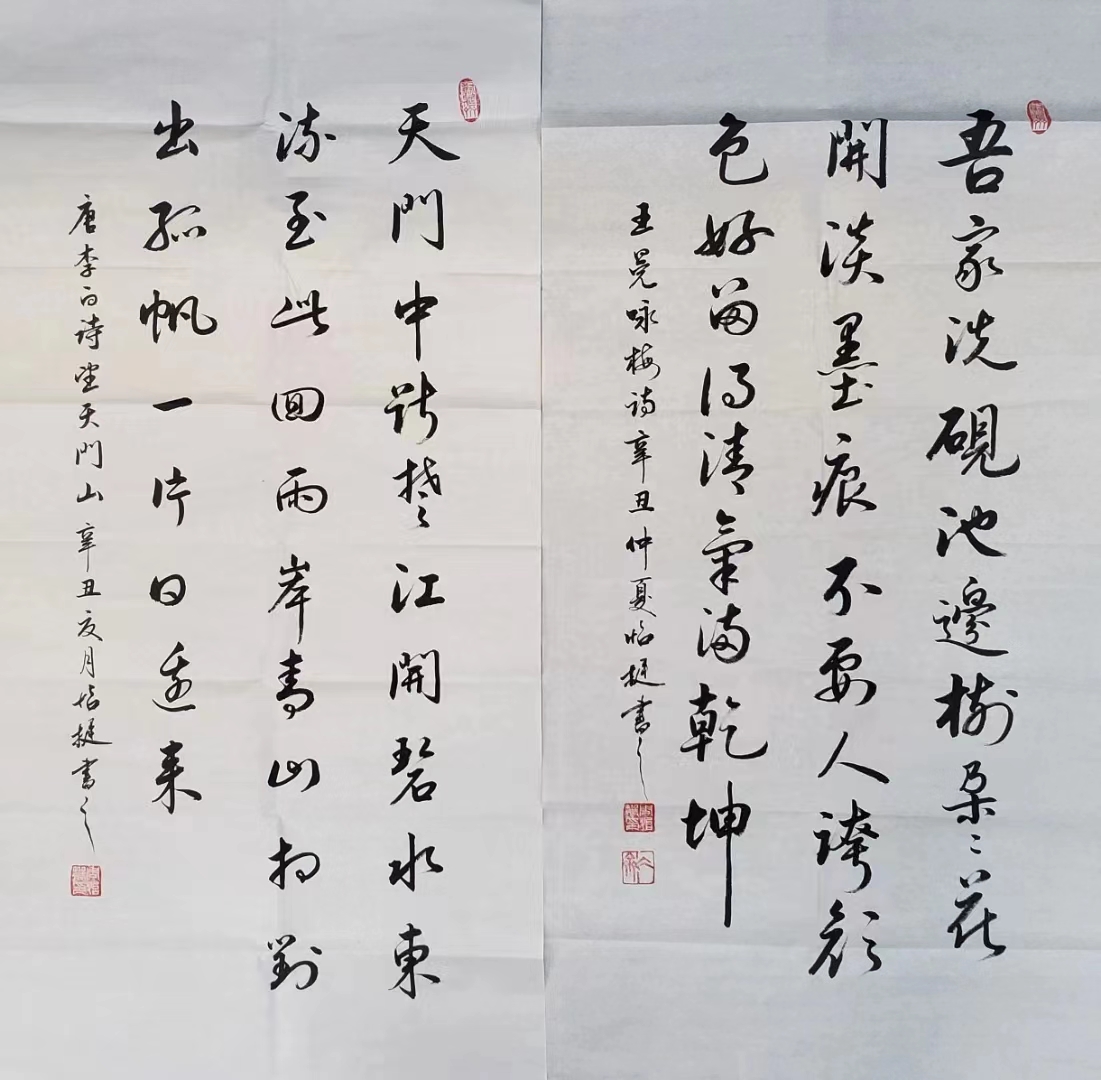 吾家洗硯池邊樹朵〻花
開淡墨痕不要人誇顏
色好留得清氣滿乾坤
王冕咏梅詩辛丑仲夏挺書之
天門中斷楚江開碧水東
流至此回兩岸青山相對
出孤帆一片日邊來
唐李白詩望天門山辛丑夏月挺書之